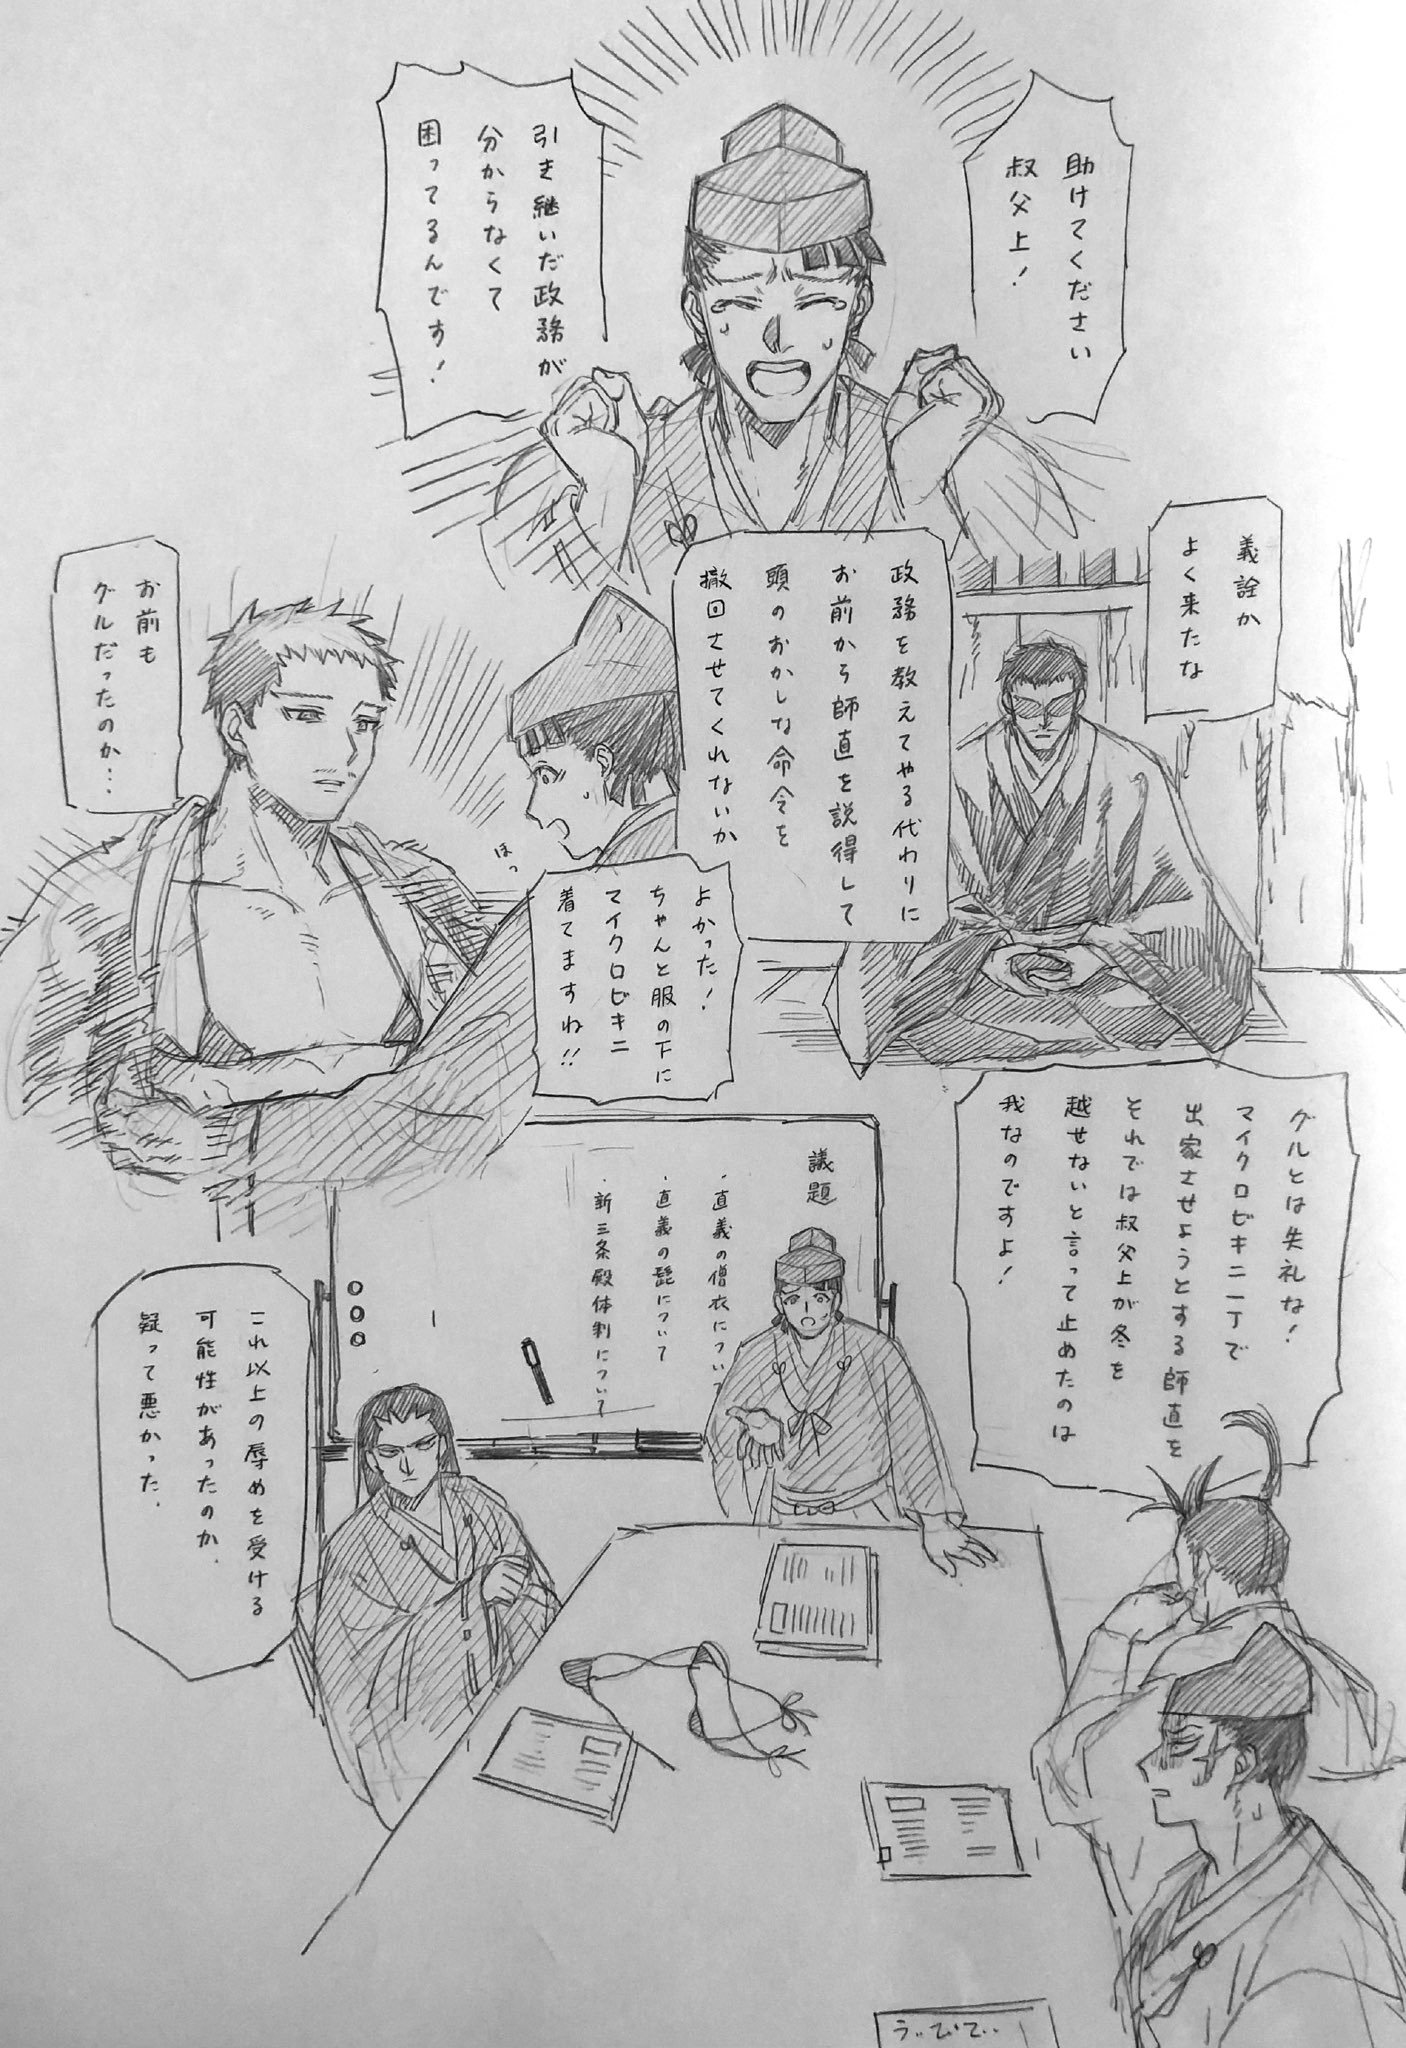 助けてください
叔父上！
引き継いだ政務が
分からなくて
困ってるんです！
義詮か
よく来たな
政務を教えてやる代わりに
お前から師直を説得して
頭のおかしな命令を
撤回させてくれないか
ほっ
よかった！
ちゃんと服の下に
マイクロビキニ
着てますね！！
お前も
グルだったのか…
グルとは失礼な！
マイクロビキニ一丁で
出家させようとする師直を
それでは叔父上が冬を
越せないと言って止めたのは
我なのですよ！
議題
・直義の僧衣について
・直義の髭について
・新三条殿体制について
これ以上の辱めを受ける
可能性があったのか、
疑って悪かった、